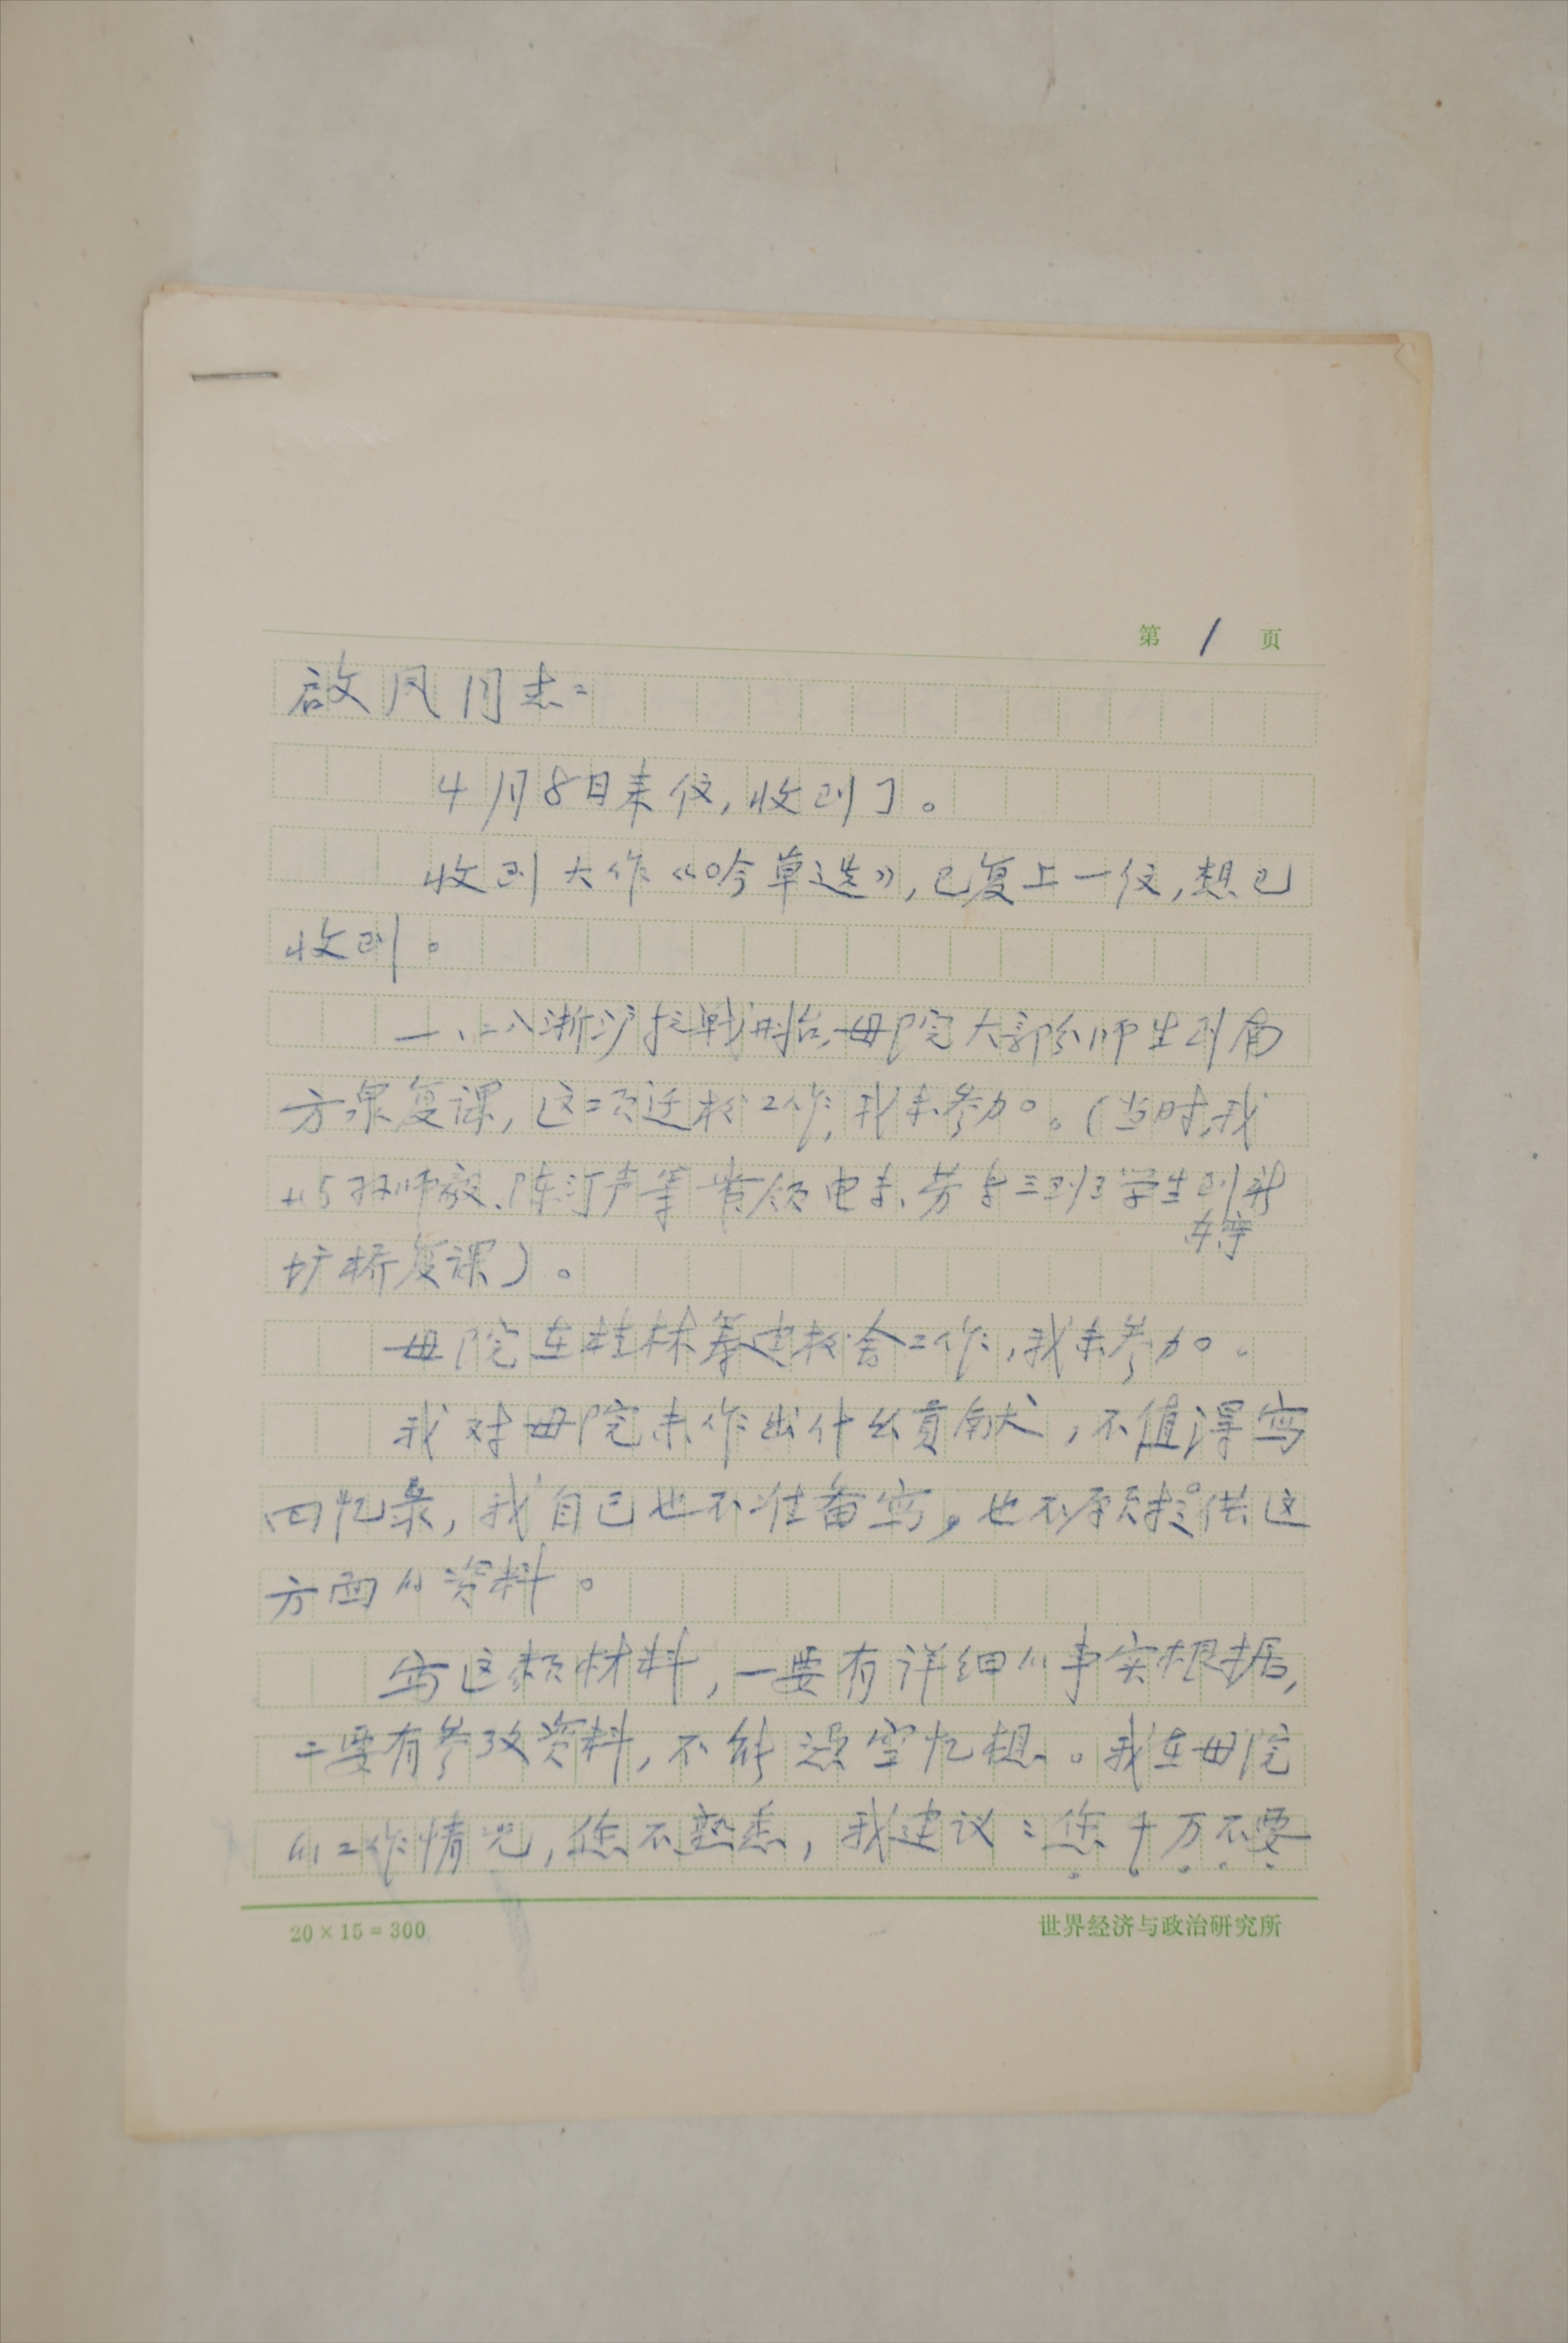 第 1 页
啟凤同志：
4月8日来信，收到了。
收到大作《吟草选》，已复上一信，想已
收到。
一、二八淞沪抗战开始，母院大部分师生到南
方泉复课，这项迁校工作，我未参加。（当时，我
与孙师毅、陈汀声等带领电影、劳专三班学生到新
在
桥复课）。
母院在桂林筹建校舍工作，我未参加。
我对母院未作出什么贡献，不值得写
回忆录，我自己也不准备写，也不愿提供这
方面的资料。
写这类材料，一要有详细的事实根据，
二要有参考资料，不能凭空忆想。我在母院
的工作情况，您不熟悉，我建议：您千万不要
20×15=300
世界经济与政治研究所